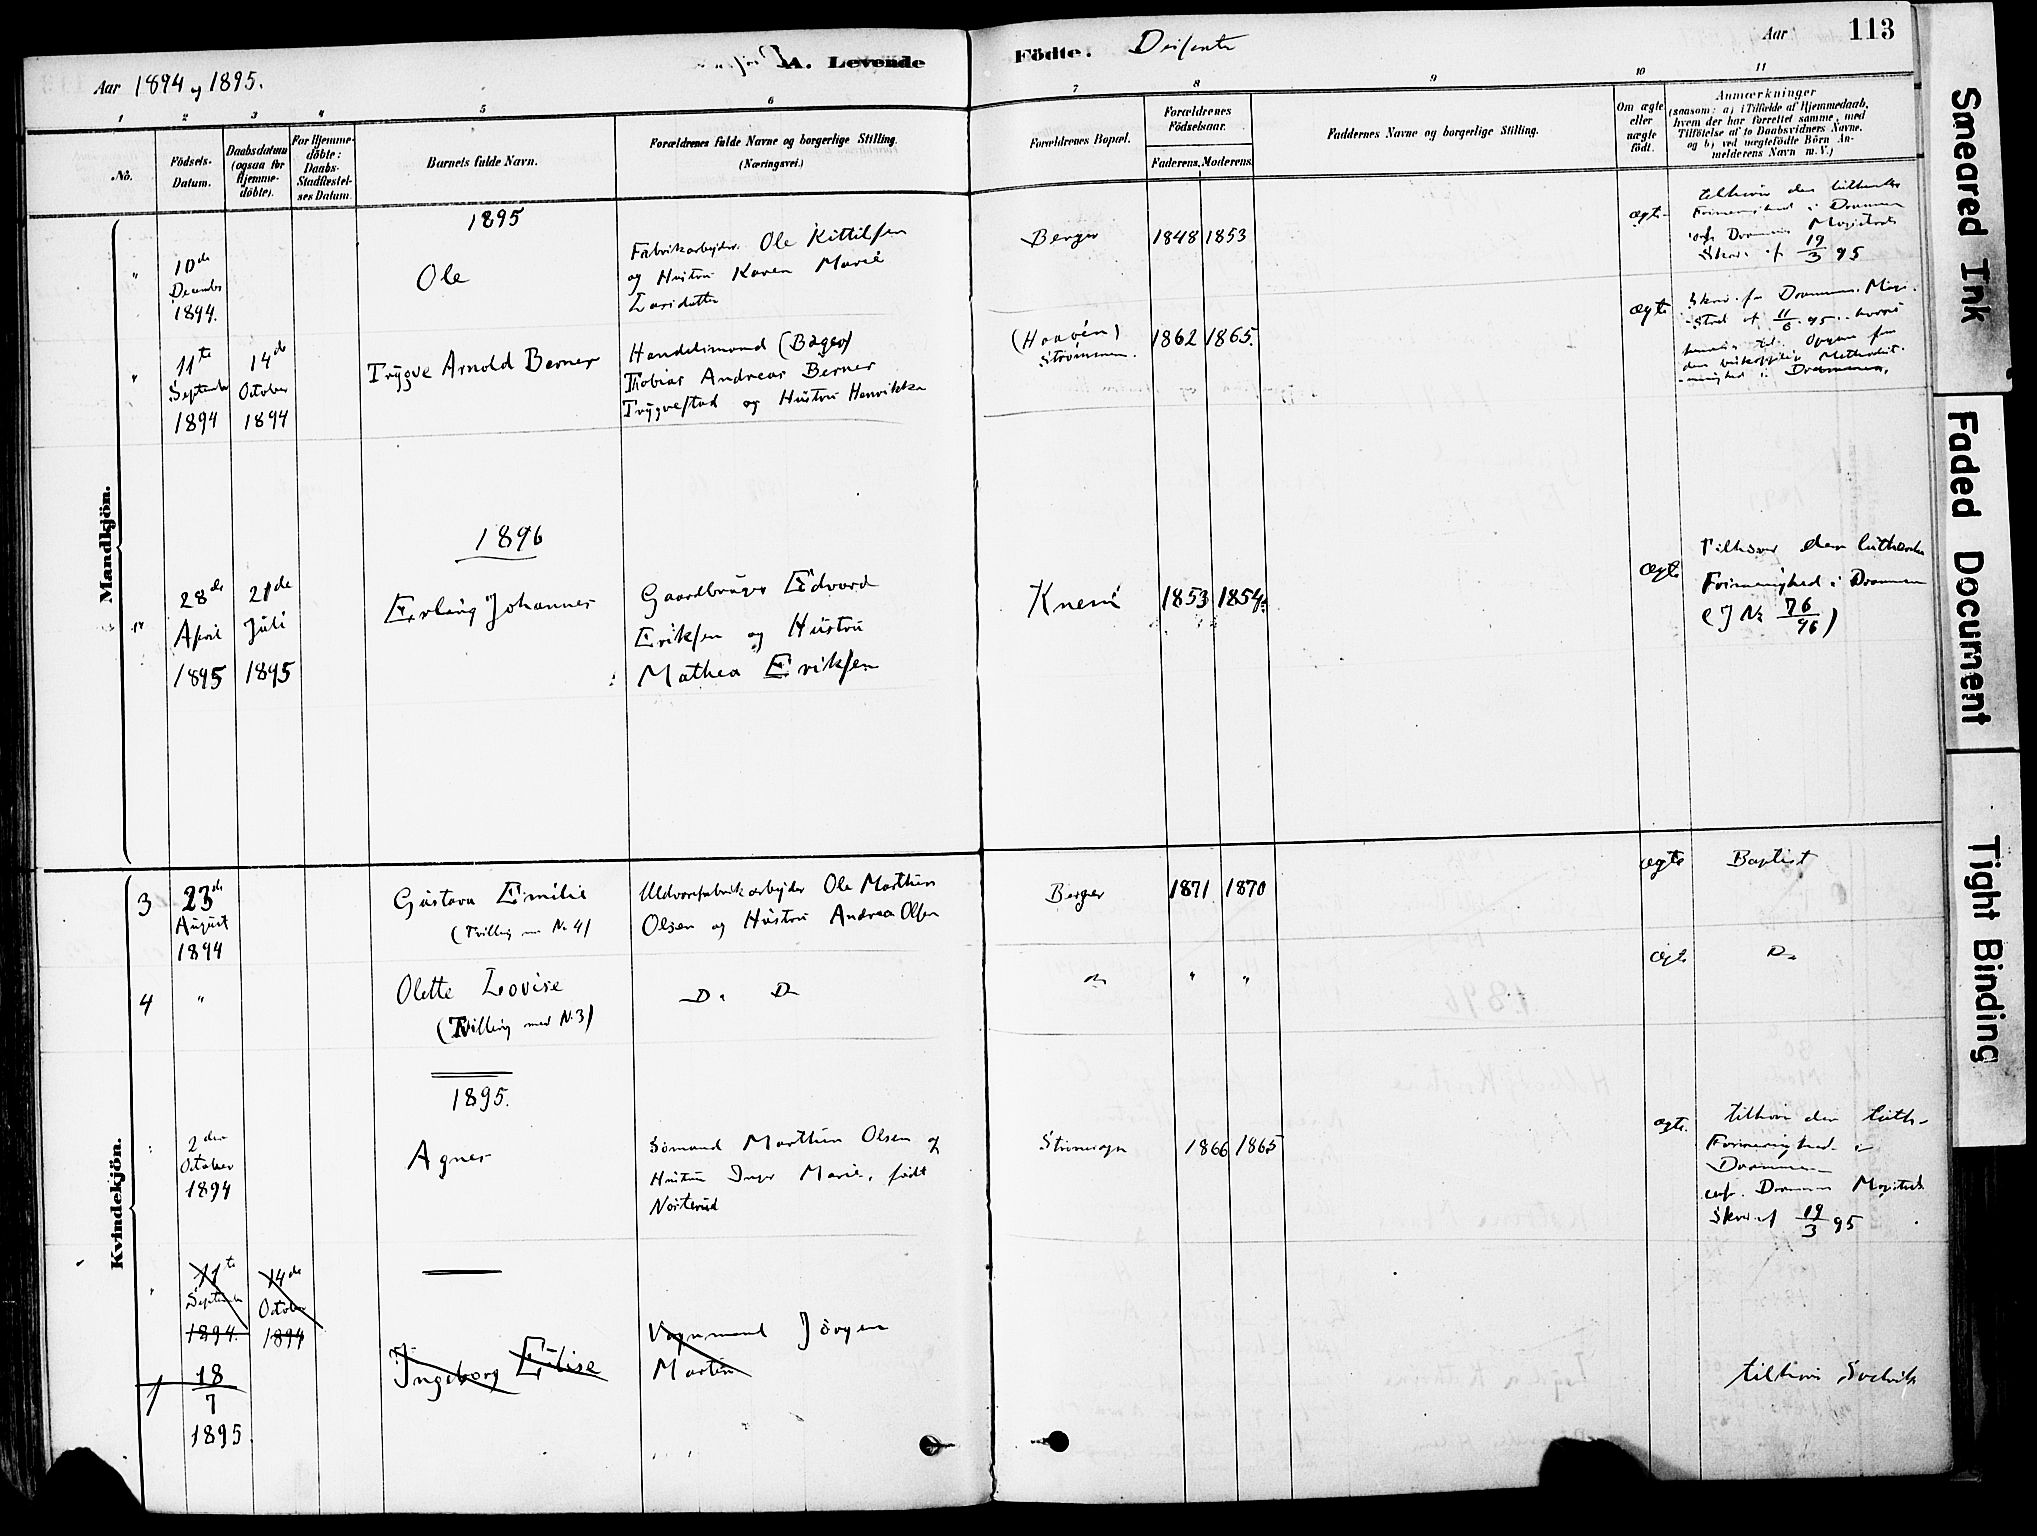 Aar 1894 og 1895.
A. Levende
Födte.
Aar
113
1
2
3
4
5
6
7
8
9
10
11
No.
Födsels-
Datum.
Daabsdatum
(ogsaa for
Hjemme-
döbte).
For Hjemme-
döbte:
Daabs-
Stadfæstel-
ses Datum
Barnets fulde Navn.
Forældrenes fulde Navne og borgerlige Stilling.
(Næringsvei.)
Forældrenes Bopæl.
Forældrenes
Födselsaar.
Faderens.
Moderens.
Faddernes Navne og borgerlige Stilling.
Om ægte
eller
uægte
födt.
Anmærkninger
(saasom: a) i Tilfælde af Hjemmedaab,
hvem der har forrettet samme, med
Tilföielse af to Daabsvidners Navne.
og b) ved uægtefödte Börn An-
melderens Navn m. V.)
Mandkjön.
1895
"
10de
December
1894.
Ole
Fabrikarbejder Ole Kittilsen
og Hustru Karen Marie
Larsdatter
Berger
1848
1853
ægte
tilhører den lutherske
Frimenighed i Drammen
cfr Drammens Magistrats
Skr. af 19/3 95
"
11te
September
1894
14de
October
1894
Trygve Arnold Berner
Handelsmand (Bager)
Thobias Andreas Berner
Trygvestad og Hustru Henrikke
(Haaøen)
Strømmen.
1862
1865.
ægte
Skr. fra Drammens Magi-
strat af 11/6 95
Drammen.
1896
"
28de
April
1895
21de
Juli
1895
Erling Johannes
Gaardbruger Edvard
Eriksen og Hustru
Mathea Eriksen
Knem
1853
1854.
ægte
Tilhører den lutherske
Frimenighed i Drammen
(J No 76/96)
Kvindekjön.
3
23de
August
1894
Gustava Emilie
(Tvilling m No 4)
Uldvarefabrikarbejder Ole Marthin
Olsen og Hustru Andrea Olsen
Berger
1871
1870
ægte
Baptist
4
"
Olette Lovise
(Tvilling med N. 3)
Do Do
do
"
"
ægte
Do
1895.
"
2den
October
1894
Agnes
Sømand Marthin Olsen og
Hustru Inger Marie, født
Nørterud
Strømmen
1866
1865
ægte.
tilhører den luth-
Frimenighed i
Drammen
cfr. Drammens Magistrats
Skr. af 19/3 95
"
11te
September
1894.
14de
October
1894
Ingeborg Elise
Vognmand Jörgen
Martin
1
18/7
1895.
tilhører Svelvik
Smeared Ink
Faded Document
Tight Binding